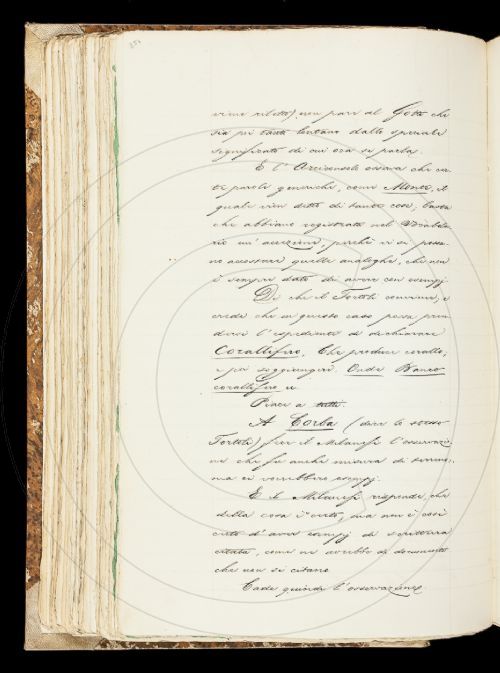 viene riletto), non pare al Gotti che
sia poi tanto lontano dallo speciale
significato di cui ora si parla.
E l'Arciconsolo osserva che cer
te parole generiche, come Monte, il
quale vien detto di tante cose, basta
che abbiano registrata nel Vocabola
rio un'accezione, perchè vi si possa
no accostare quelle analoghe, che non
è sempre dato di avere con esempj
Di che il Tortoli conviene, e
crede che in questo caso possa pren
dersi l'espediente di dichiarare
Corallifero, Che produce corallo,
e poi soggiungere. Onde Banco
corallifero ec.
Piace a tutti.
A Corba (dice lo stesso
Tortoli) fece il Milanesi l'osservazio
ne che fu anche misura di terreno,
ma ci vorrebbero esempj.
E il Milanesi risponde che
della cosa è certo, ma non è così
certo d'aver esempj di scrittura
citata, come ne avrebbe di documenti
che non si citano
Cade quindi l'osservazione